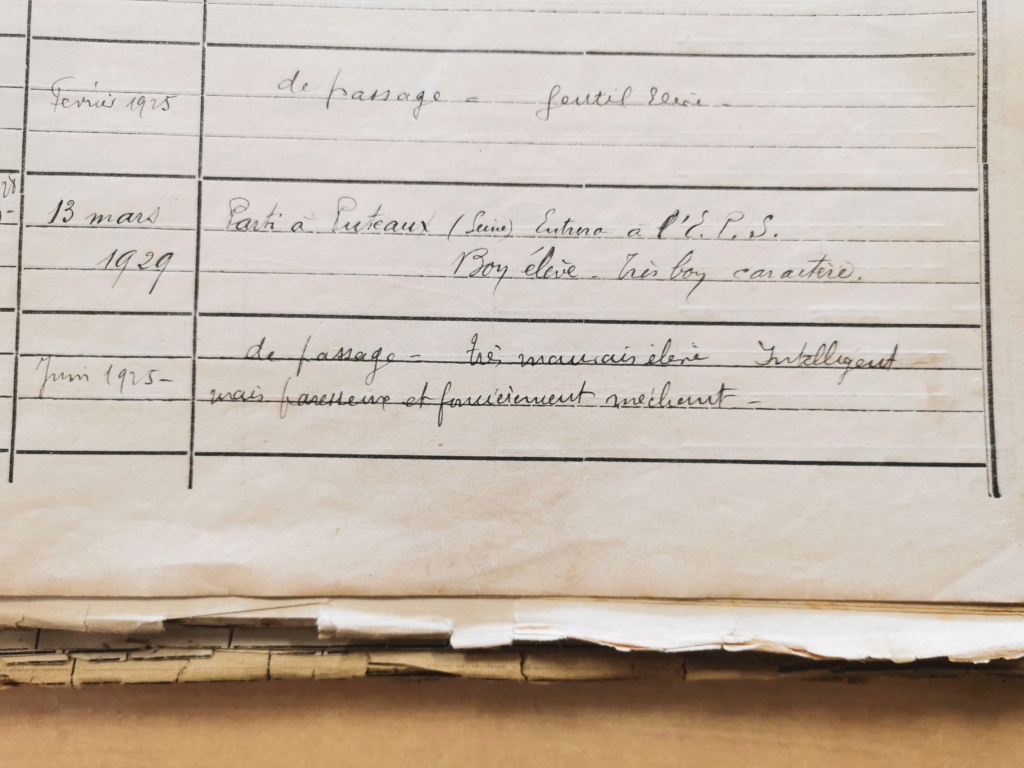 Fevrier 1925
de passage = gentil élève -
13 mars
1929
Parti à Puteaux (Seine) Entrera à l'E. P. S.
Bon élève - très bon caractère.
Juin 1925 -
de passage = très mauvais élève Intelligent
mais paresseux et foncièrement méchant -